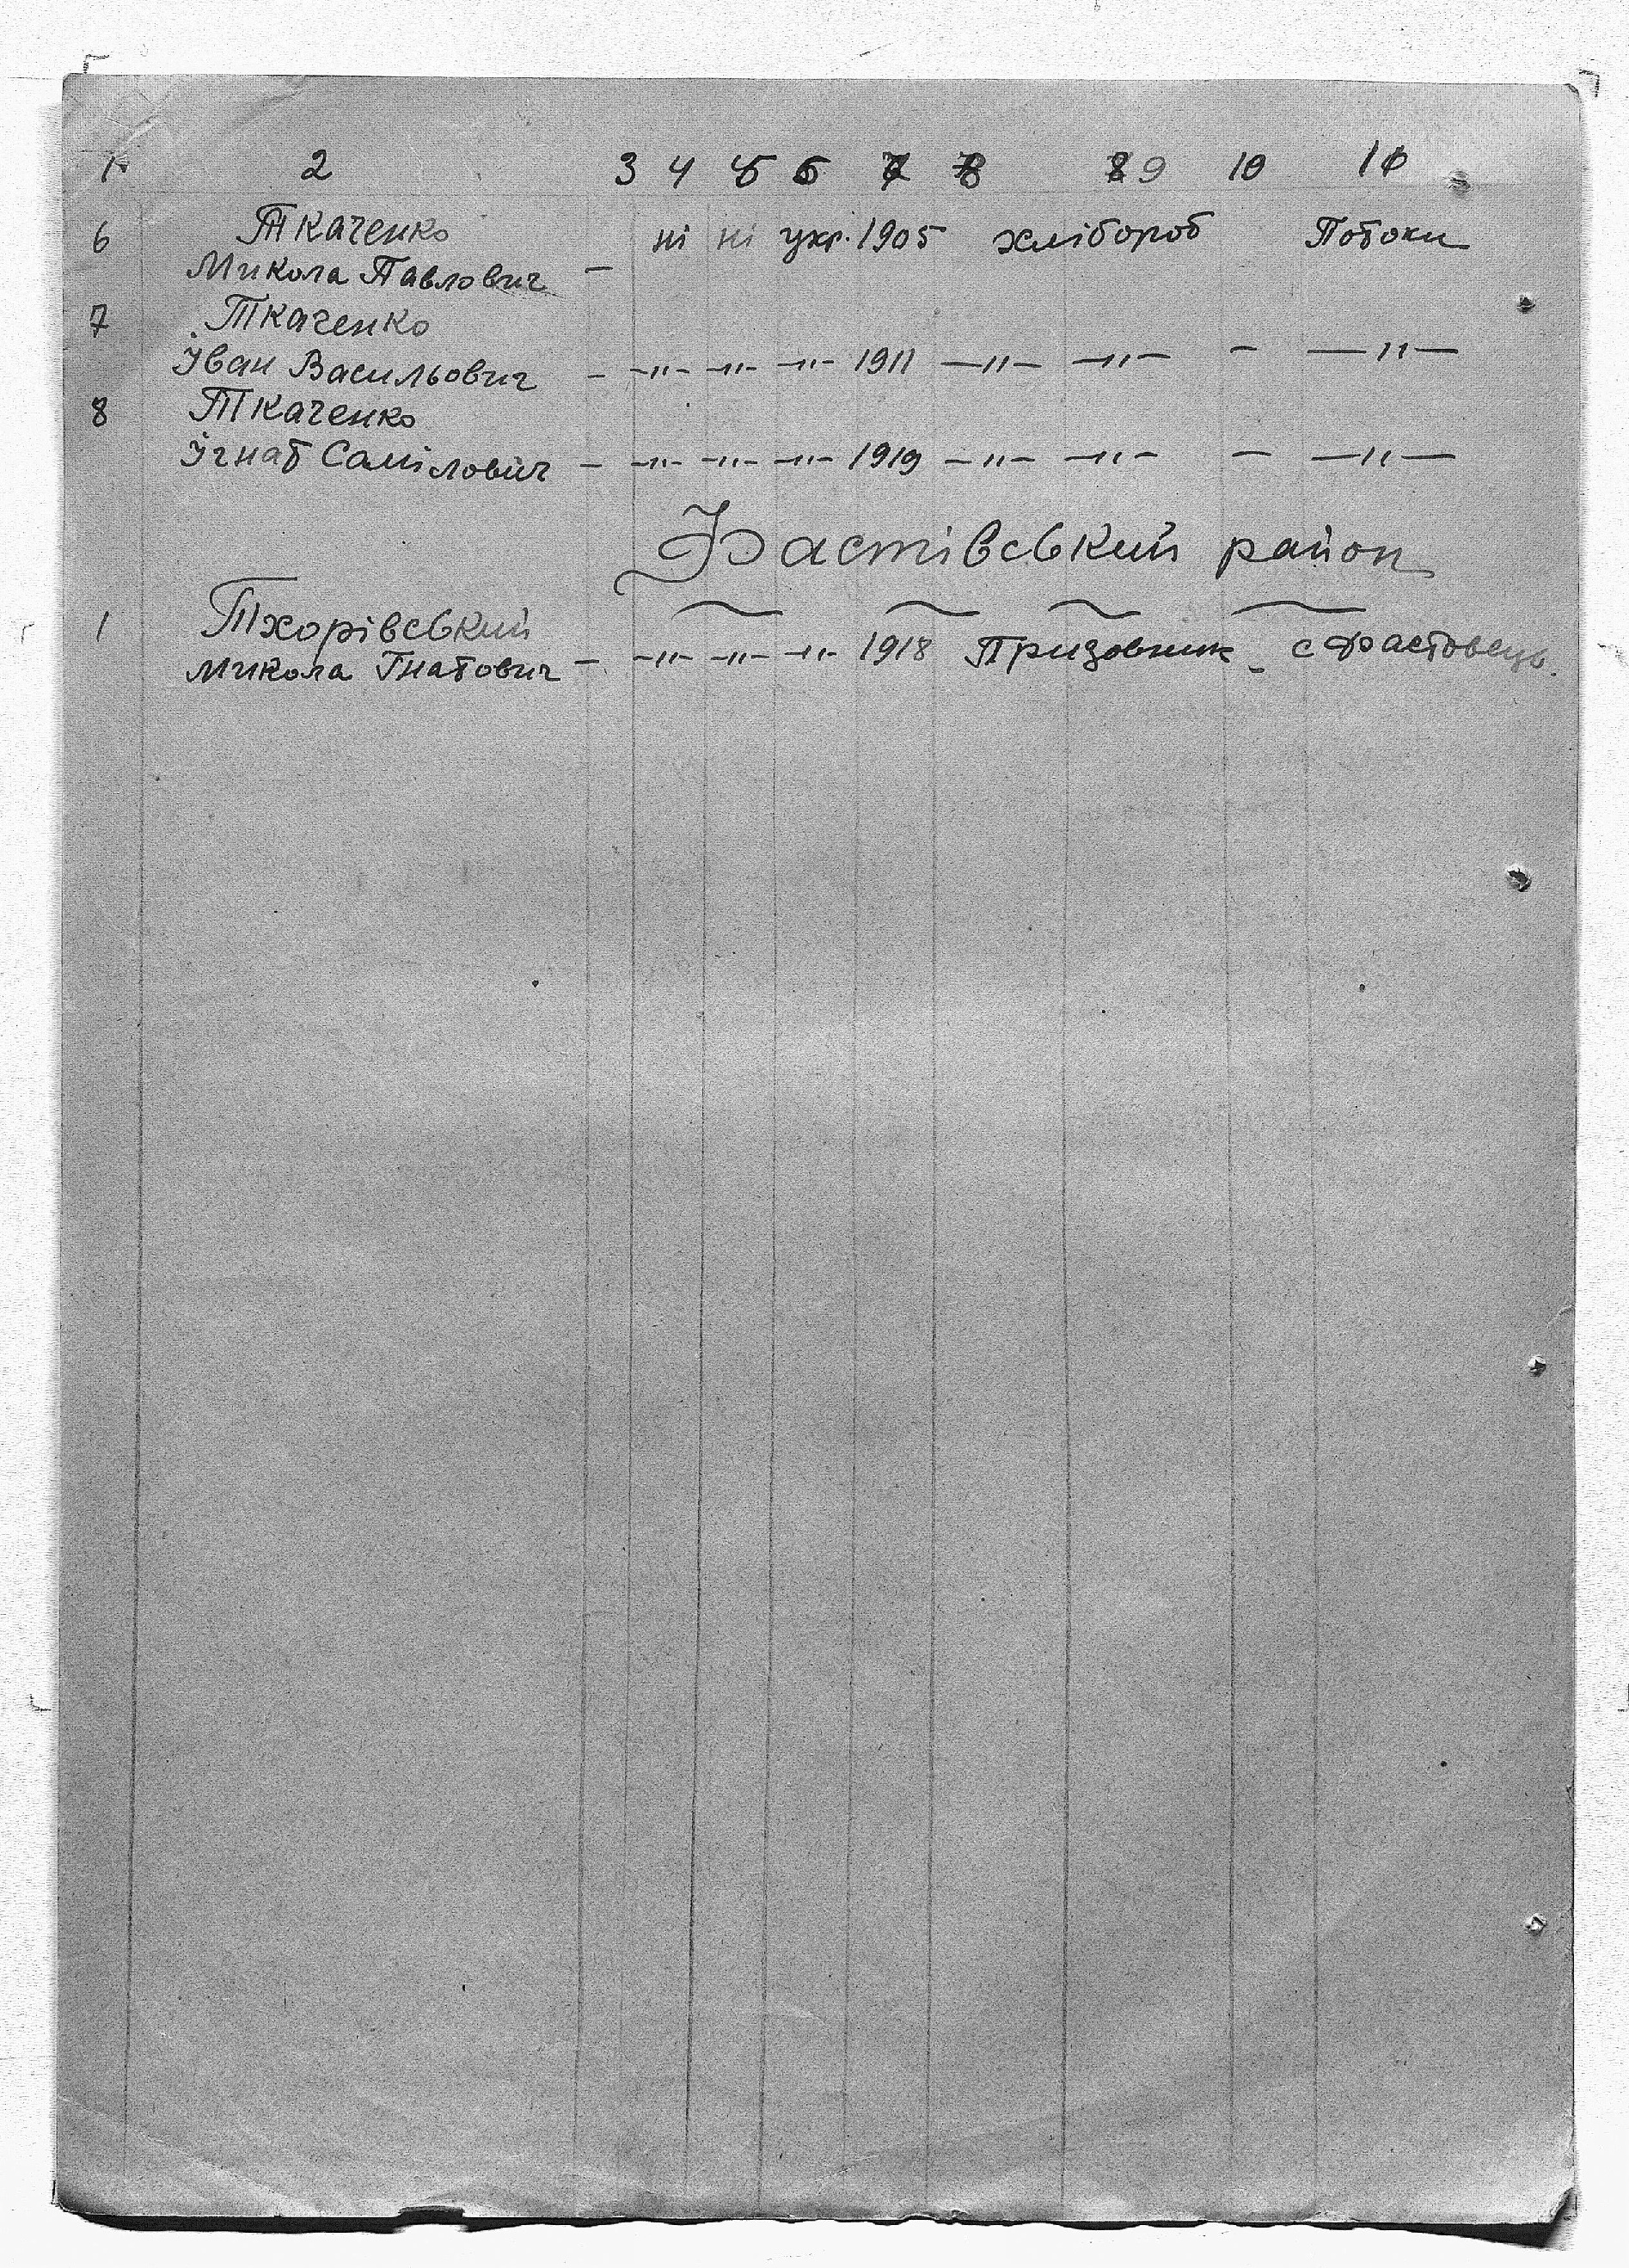 1 2 3 4 5 6 7 8 9 10 11
6 Ткаченко ні ні укр. 1905 хлібороб Потоки
Микола Павлович —
7 Ткаченко
Іван Васильович – –"– –"– –"– 1911 –"– –"– – –"–
8 Ткаченко
Ігнат Самілович – –"– –"– –"– 1919 –"– –"– – –"–
Фастівський район
1 Тхорівський
Микола Гнатович – –"– –"– –"– 1918 Призовник – с Фастовець.